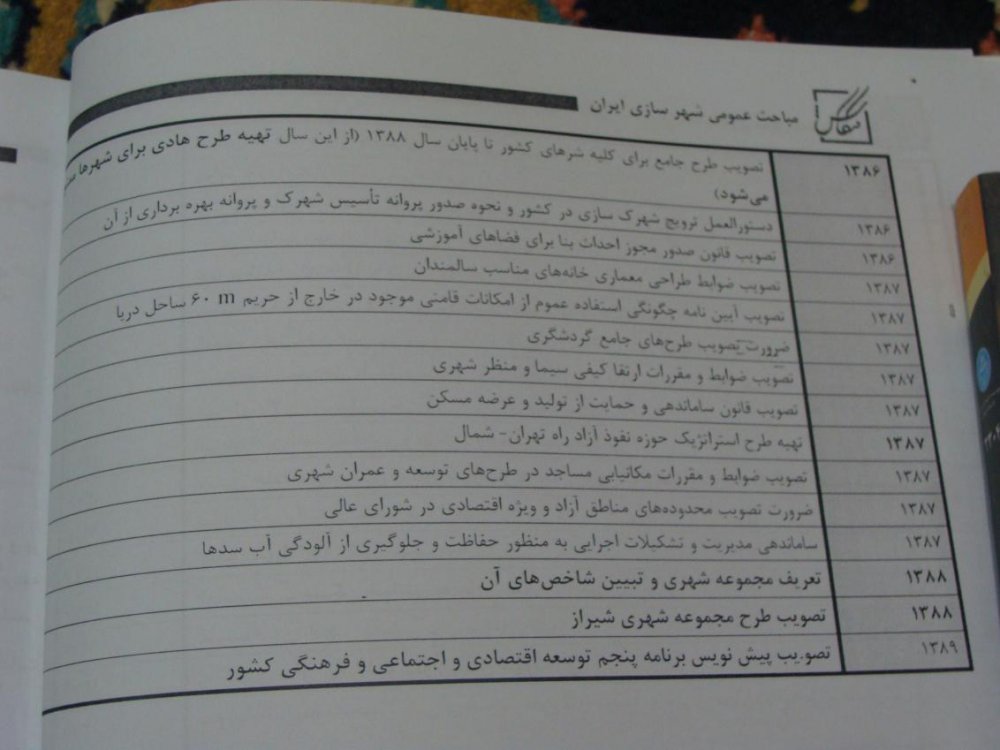 مباحث عمومی شهر سازی ایران
۱۳۸۶ تصویب طرح جامع برای کلیه شرهای کشور تا پایان سال ۱۳۸۸ (از این سال تهیه طرح هادی برای شهرها
می‌شود)
۱۳۸۶ دستورالعمل ترویج شهرک سازی در کشور و نحوه صدور پروانه تأسیس شهرک و پروانه بهره برداری از آن
۱۳۸۶ تصویب قانون صدور مجوز احداث بنا برای فضاهای آموزشی
۱۳۸۷ تصویب ضوابط طراحی معماری خانه‌های مناسب سالمندان
۱۳۸۷ تصویب آیین نامه چگونگی استفاده عموم از امکانات قامتی موجود در خارج از حریم ۶۰ m ساحل دریا
۱۳۸۷ ضرورت تصویب طرح‌های جامع گردشگری
۱۳۸۷ تصویب ضوابط و مقررات ارتقا کیفی سیما و منظر شهری
۱۳۸۷ تصویب قانون ساماندهی و حمایت از تولید و عرضه مسکن
۱۳۸۷ تهیه طرح استراتژیک حوزه نفوذ آزاد راه تهران- شمال
۱۳۸۷ تصویب ضوابط و مقررات مکانیابی مساجد در طرح‌های توسعه و عمران شهری
۱۳۸۷ ضرورت تصویب محدوده‌های مناطق آزاد و ویژه اقتصادی در شورای عالی
۱۳۸۷ ساماندهی مدیریت و تشکیلات اجرایی به منظور حفاظت و جلوگیری از آلودگی آب سدها
۱۳۸۸ تعریف مجموعه شهری و تبیین شاخص‌های آن
۱۳۸۸ تصویب طرح مجموعه شهری شیراز
۱۳۸۹ تصویب پیش نویس برنامه پنجم توسعه اقتصادی و اجتماعی و فرهنگی کشور